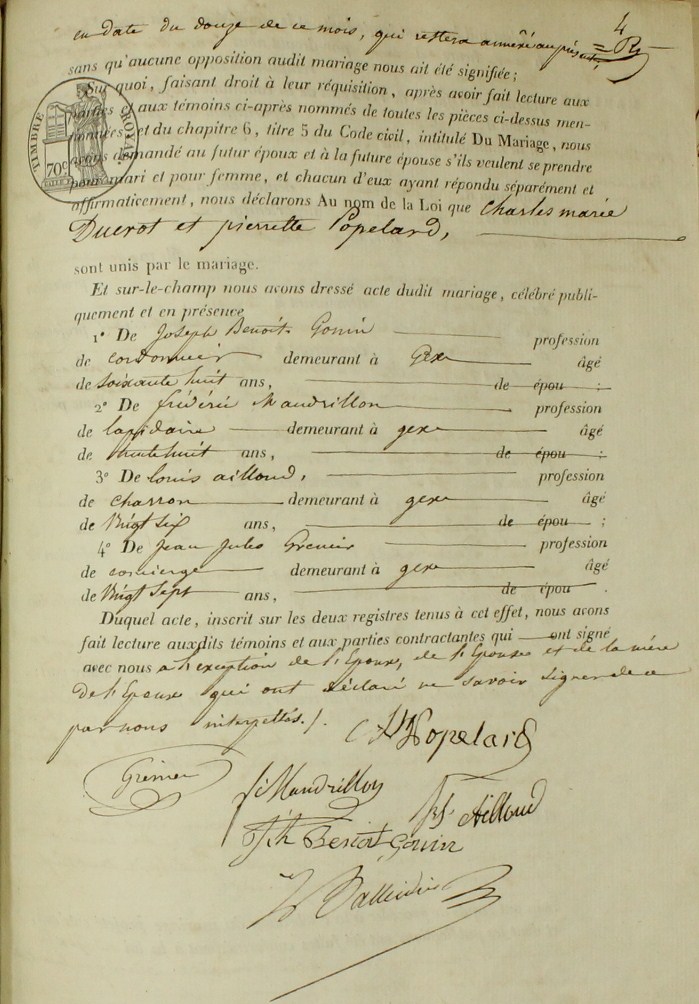 4
en date du douze de ce mois, qui restera annexé au présent,
sans qu'aucune opposition audit mariage nous ait été signifiée;
Sur quoi, faisant droit à leur réquisition, après avoir fait lecture aux
parties et aux témoins ci-après nommés de toutes les pièces ci-dessus men-
tionnées, et du chapitre 6, titre 5 du Code civil, intitulé Du Mariage, nous
avons demandé au futur époux et à la future épouse s'ils veulent se prendre
pour mari et pour femme, et chacun d'eux ayant répondu séparément et
affirmaticement, nous déclarons Au nom de la Loi que Charles marie
Ducrot et pierrette Popelard,
TIMBRE ROYAL
70c
sont unis par le mariage.
Et sur-le-champ nous avons dressé acte dudit mariage, célébré publi-
quement et en présence
1° De Joseph Benoit Gonin profession
de cordonnier demeurant à Gex âgé
de soixante huit ans, de épou ;
2° De frédéric Mandrillon profession
de lapidaire demeurant à gex âgé
de trente huit ans, de épou ;
3° De louis ailloud, profession
de charron demeurant à gex âgé
de Vingt Six ans, de épou ;
4° De Jean Jules Grenier profession
de concierge demeurant à gex âgé
de Vingt Sept ans, de épou .
Duquel acte, inscrit sur les deux registres tenus à cet effet, nous avons
fait lecture auxdits témoins et aux parties contractantes qui ont signé
avec nous a l'exception de l'Epoux, de l'Epouse et de la mère
de l'Epoux qui ont déclaré ne savoir signer de ce
par nous interpellés./.
Popelard
Grenier
Mandrillon
Ailloud
Jh Benoit Gonin